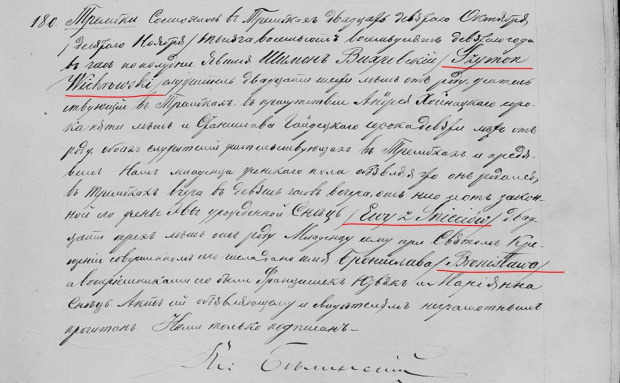 180. Трембки Состоялось въ Трембкахъ двадцать девятаго Октября
/десятаго Ноября/ тысяча восемьсотъ восемьдесятъ девятаго года
въ часъ по полудни явился Шимонъ Вихровскій /Szymon
Wichrowski/ служитель двадцати лѣтъ отъ роду житель
ствующій въ Трембкахъ, въ присутствіи Андрея Хойнацкаго соро
ка пяти лѣтъ и Станислава Гайдецкаго сорока девяти лѣтъ отъ
роду обоихъ служителей жительствующихъ въ Трембкахъ и предъя
вилъ Намъ младенца женскаго пола объявляя что онъ родился
въ Трембкахъ вчера въ девять часовъ вечера, отъ него и отъ закон
ной его жены Евы урожденной Снѣць /Ewy z Śnieców/ двад
цати трехъ лѣтъ отъ роду Младенцу сему при Святомъ Кре
щеніи совершенномъ сего числа дано имя Бронислава /Bronisława/
а воспріемниками его были Францишекъ и Маріанна
Снѣць. Актъ сей объявляющему и свидѣтелямъ неграмотнымъ
прочитанъ Нами только подписанъ.—
Кс: